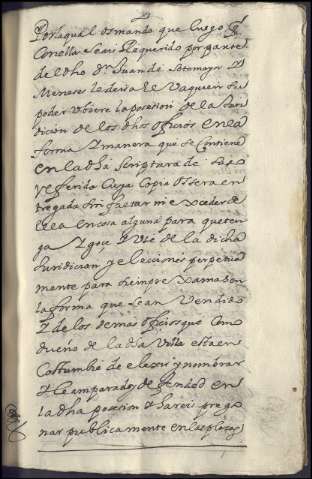 Por la qual os mando que luego q̃
Con ella seais Requerido por parte
del dho Dn Juan de Sotomayor
Meneses le deis a el U a quien su
poder ubiere la posesion de la Juris
dicion de los dhos officios en la
forma I manera que se Contiene
en la dha Scriptura de
referida Cuya Copia os sera en
tregada sin faltar ni exceder de
ella en cosa alguna para que ten
ga I goçe I use de la dicha
Juridicion y elecciones perpetua
mente para siempre xamas en
la forma que se an Vendido
I de los demas officios que Como
dueño de la dha Villa esta en
Costumbre de elexir y nombrar
I le amparad y defended en
la dha posesion I hareis prego
nar publicamente en las plaças